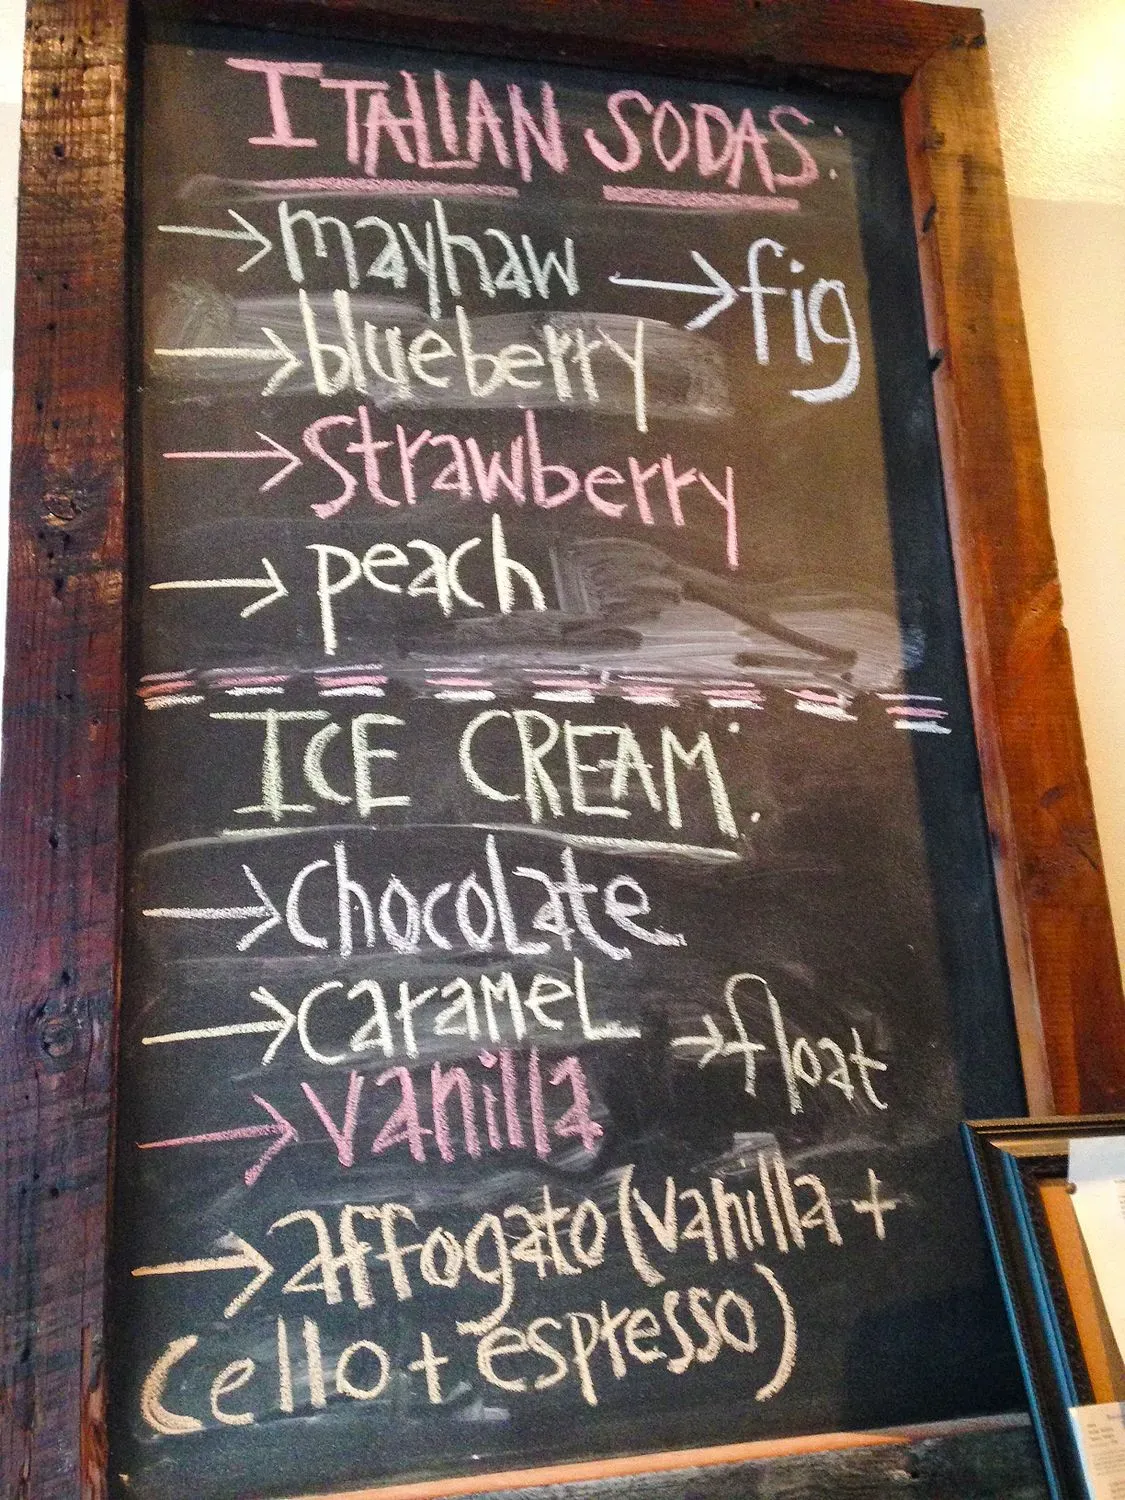 ITALIAN SODAS:
→ mayhaw
→ fig
→ blueberry
→ strawberry
→ peach
ICE CREAM:
→ chocolate
→ caramel
→ float
→ vanilla
→ affogato (vanilla +
cello + espresso)